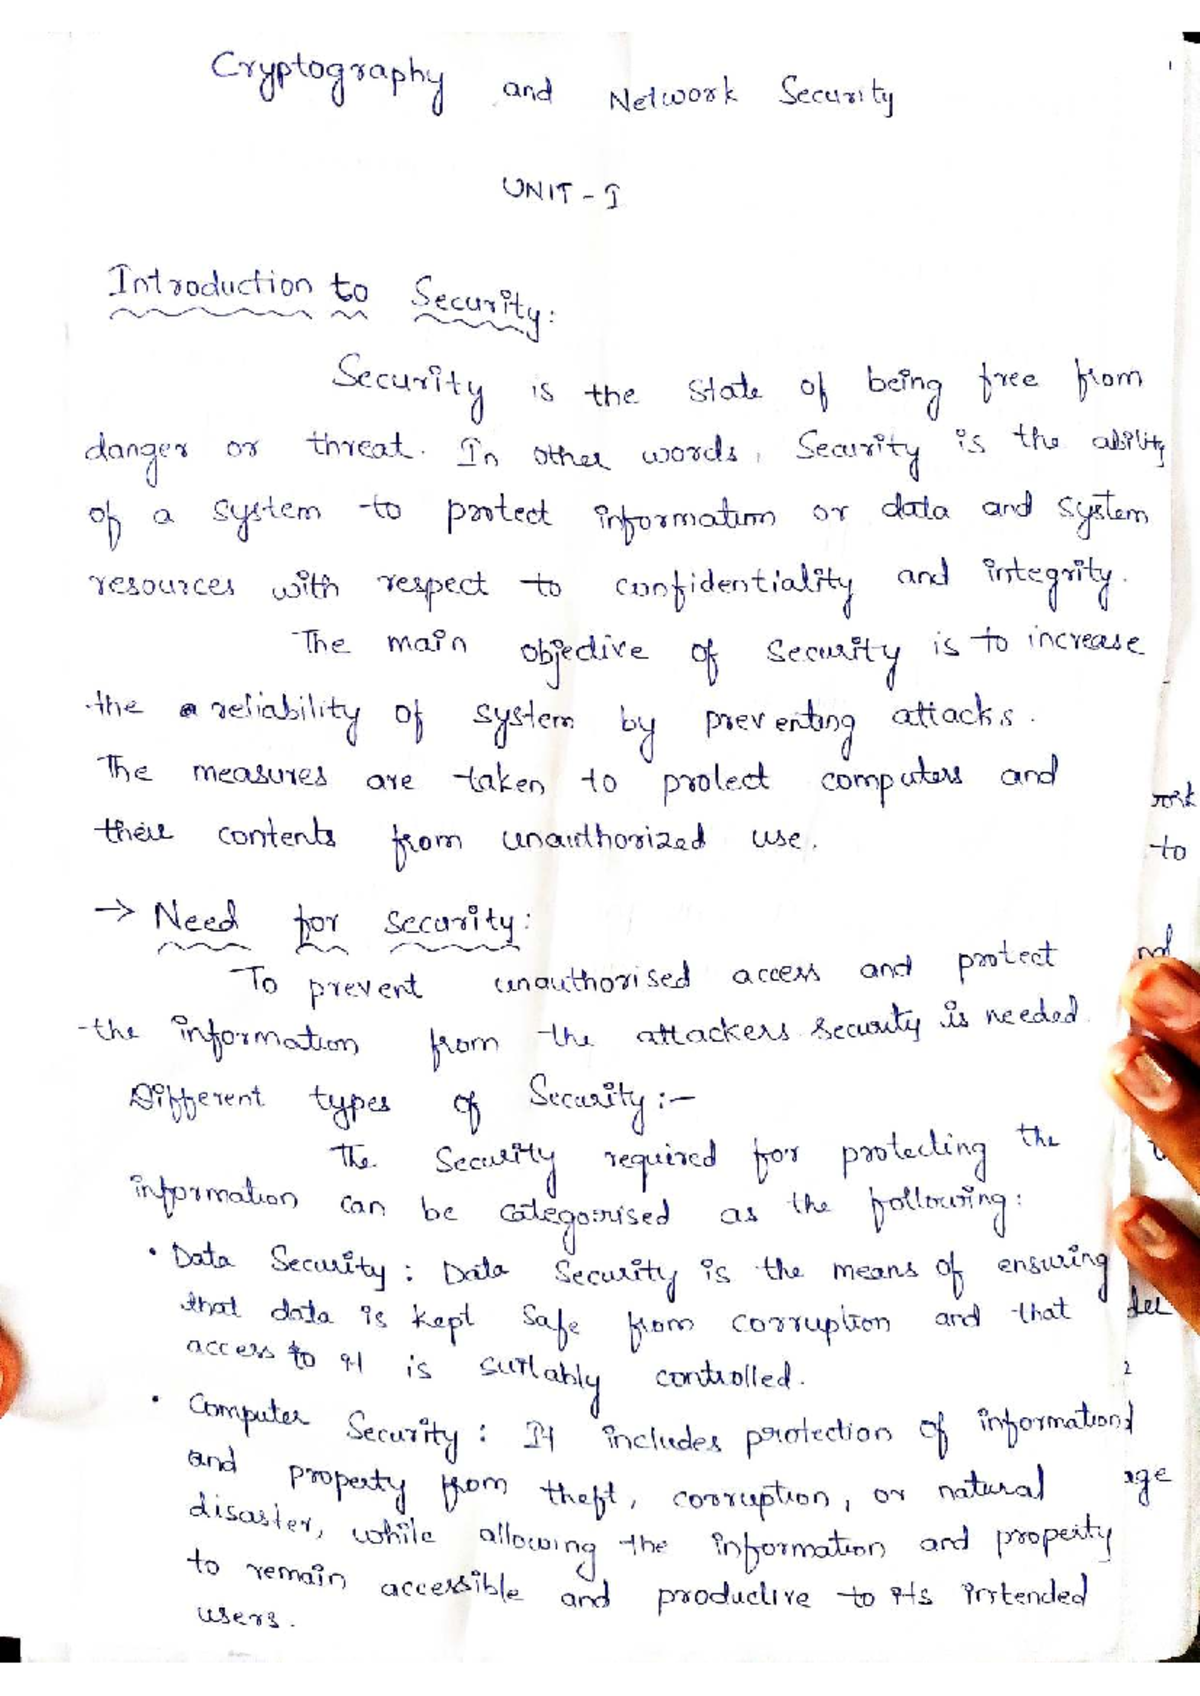 Cryptography and Network Security
UNIT - I
Introduction to Security:
Security is the state of being free from
danger or threat. In other words, Security is the ability
of a system to protect information or data and system
resources with respect to confidentiality and integrity.
The main objective of security is to increase
the reliability of system by preventing attacks.
The measures are taken to protect computers and
their contents from unauthorized use.
→ Need for security:
To prevent unauthorised access and protect
the information from the attackers security is needed.
Different types of Security:-
The Security required for protecting the
information can be categorised as the following:
• Data Security: Data Security is the means of ensuring
that data is kept safe from corruption and that
access to it is suitably controlled.
• Computer Security: It includes protection of information
and property from theft, corruption, or natural
disaster, while allowing the information and property
to remain accessible and productive to its intended
users.
to
2